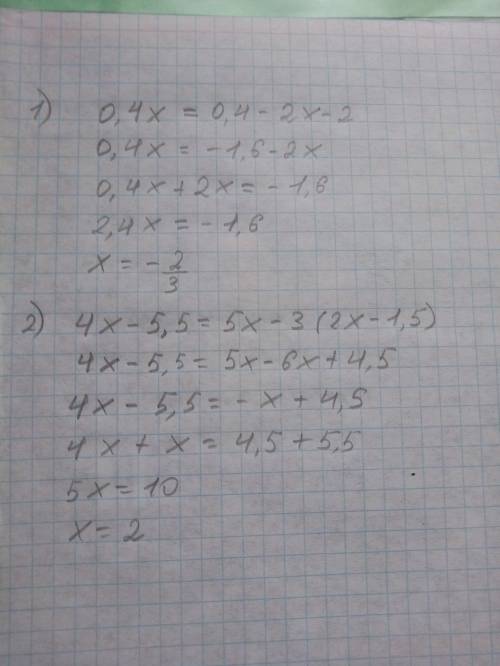 1) 0,4x = 0,4 - 2x - 2
0,4x = -1,6 - 2x
0,4x + 2x = -1,6
2,4x = -1,6
x = -2/3
2) 4x - 5,5 = 5x - 3 (2x - 1,5)
4x - 5,5 = 5x - 6x + 4,5
4x - 5,5 = -x + 4,5
4x + x = 4,5 + 5,5
5x = 10
x = 2